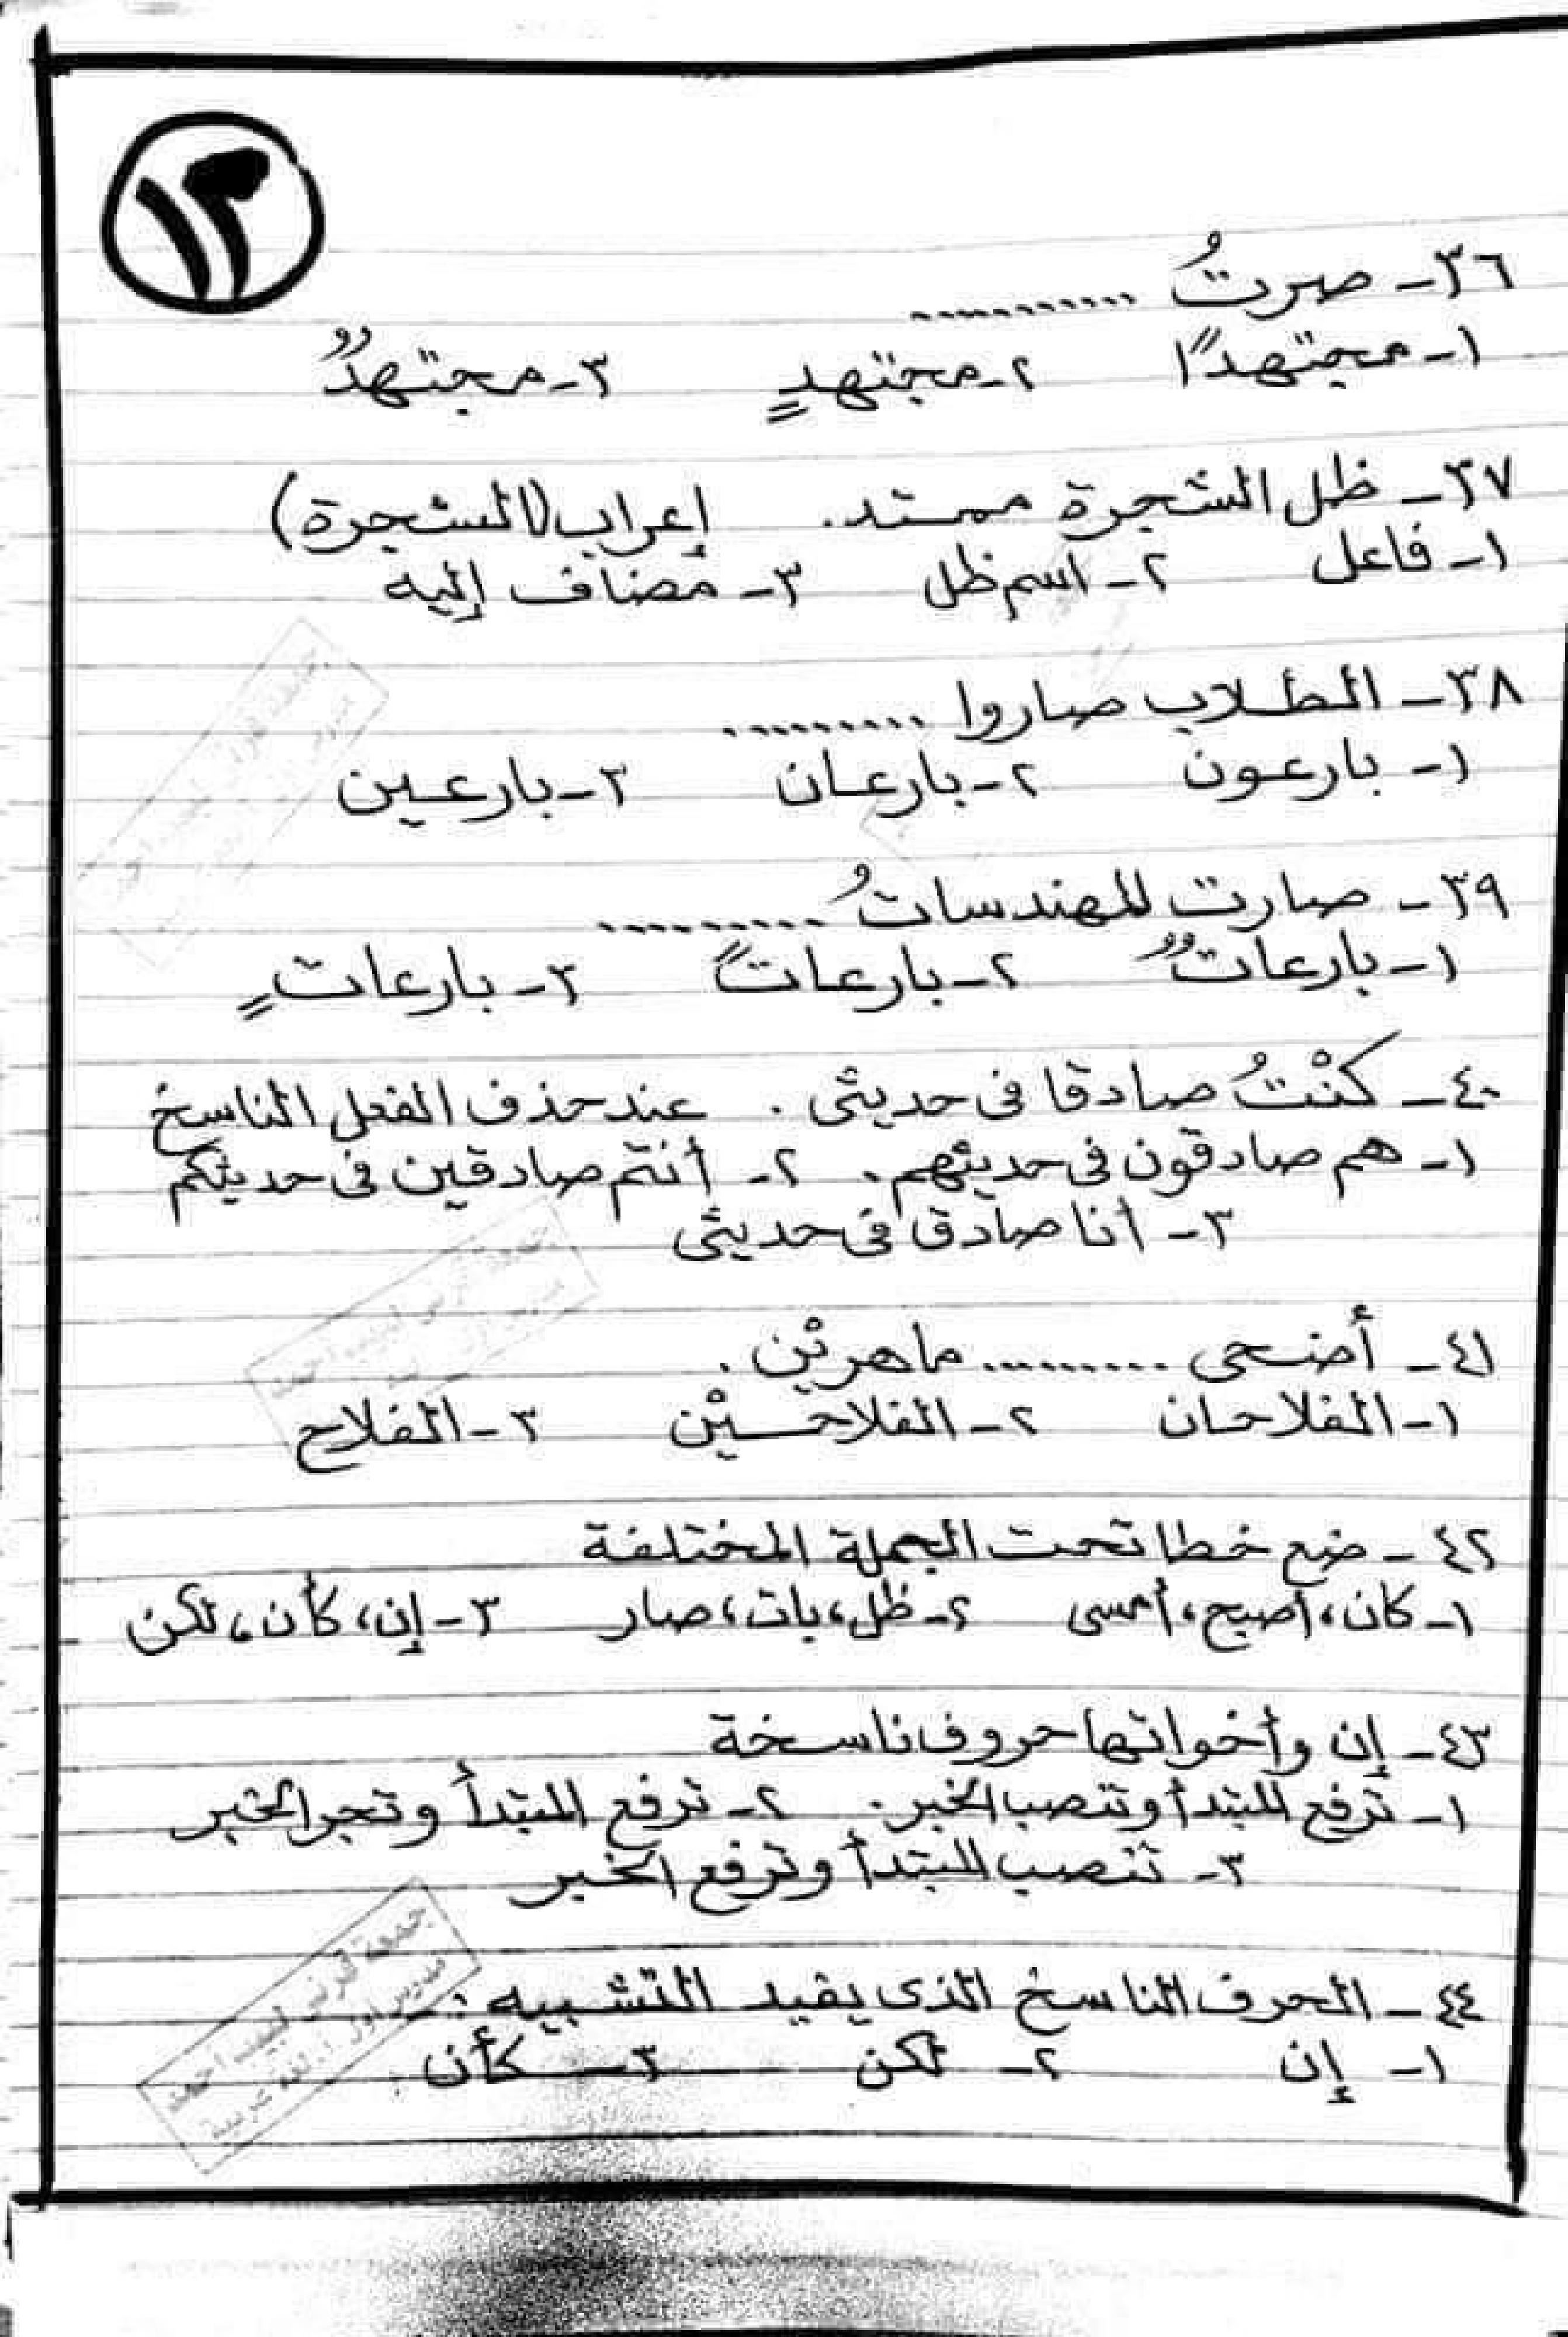 ١٣
٣٦- صرتُ ..........
١- مجتهدًا ٢- مجتهدٍ ٣- مجتهدٌ
٣٧- ظل الشجرة ممتد. إعراب (الشجرة)
١- فاعل ٢- اسم ظل ٣- مضاف إليه
٣٨- الطلاب صاروا ..........
١- بارعون ٢- بارعان ٣- بارعين
٣٩- صارت المهندساتُ ..........
١- بارعاتٌ ٢- بارعاتً ٣- بارعاتٍ
٤٠- كنْتُ صادقا فى حديثى . عند حذف الفعل الناسخ
١- هم صادقون فى حديثهم. ٢- أنتم صادقين فى حديثكم
٣- أنا صادق فى حديثى
٤١- أضحى .......... ماهرين .
١- الفلاحان ٢- الفلاحيْن ٣- الفلاح
٤٢- ضع خطا تحت الجملة المختلفة
١- كان، أصبح، أمسى ٢- ظل، بات، صار ٣- إن، كأن، لكن
٤٣- إن وأخواتها حروف ناسخة
١- ترفع المبتدأ وتنصب الخبر. ٢- ترفع المبتدأ وتجر الخبر
٣- تنصب المبتدأ وترفع الخبر
٤٤- الحرف الناسخ الذى يفيد التشبيه :
١- إن ٢- لكن ٣- كأن